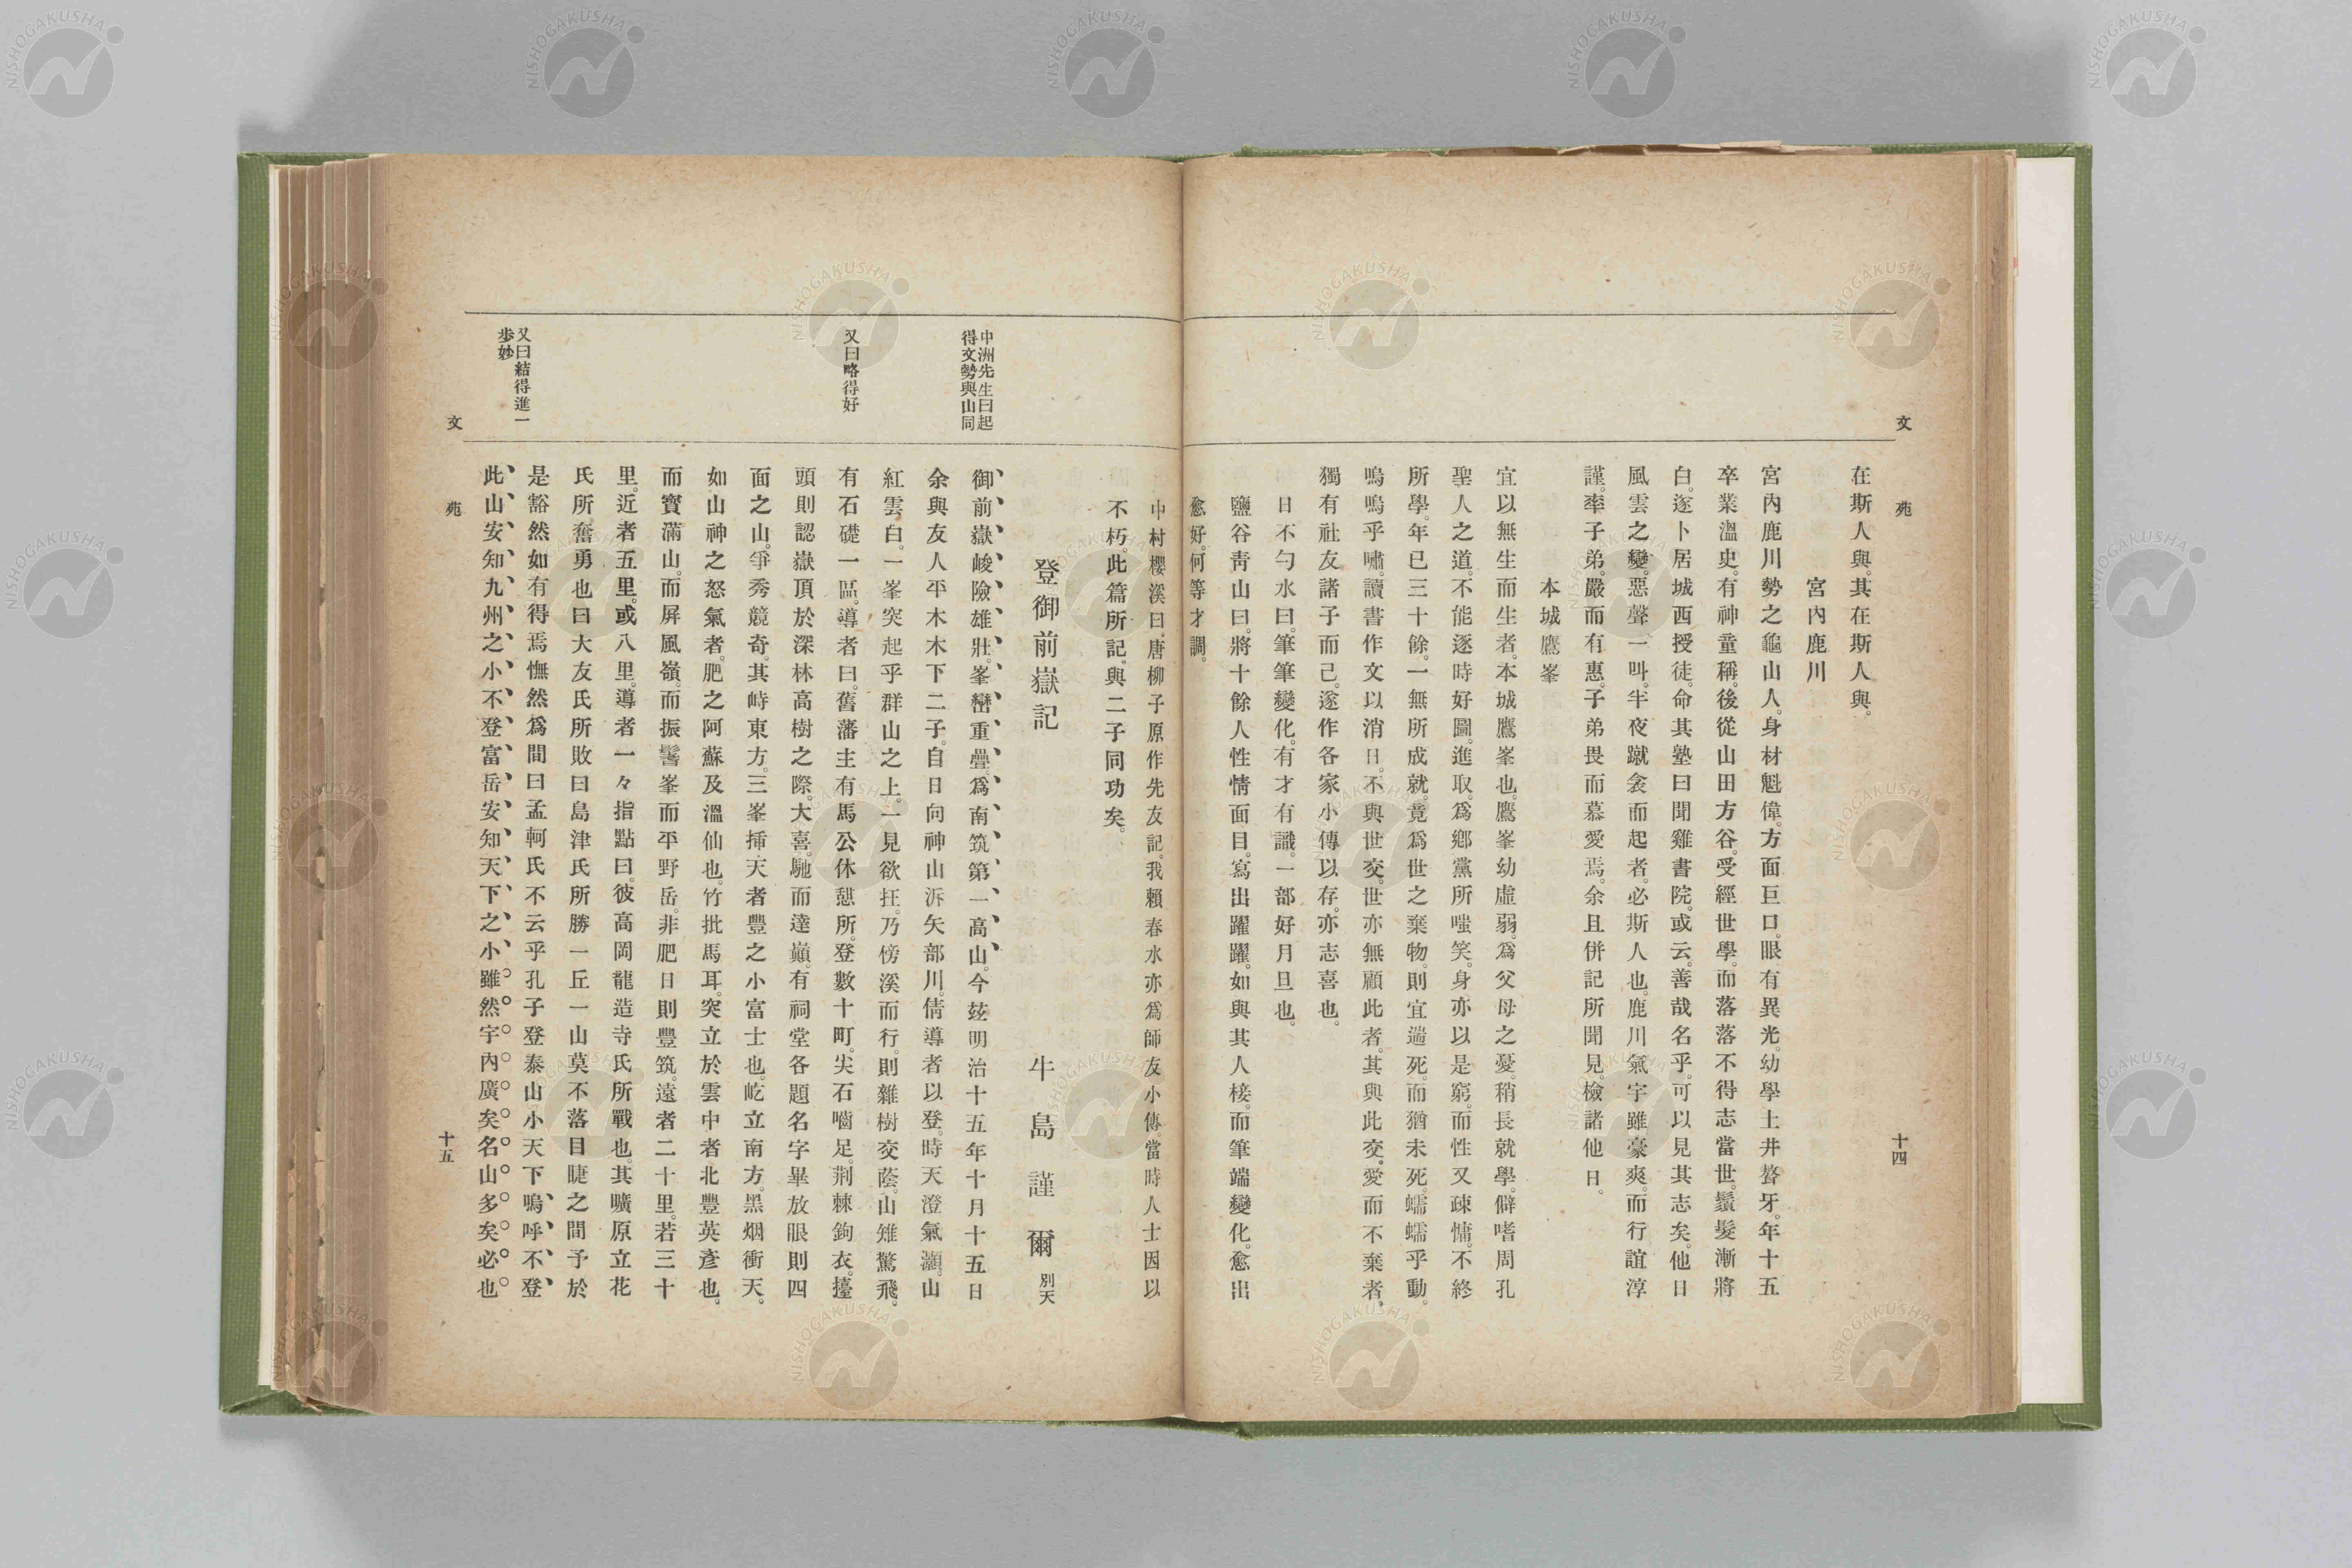 文　苑
十四
在斯人與。其在斯人與。
宮內鹿川
宮內鹿川勢之龜山人。身材魁偉。方面巨口。眼有異光。幼學土井聱牙。年十五
卒業溫史。有神童稱。後從山田方谷。受經世學。而落落不得志當世。鬚髮漸將
白。遂卜居城西授徒。命其塾曰聞雞書院。或云。善哉名乎。可以見其志矣。他日
風雲之變。惡聲一叫。半夜蹴衾而起者。必斯人也。鹿川氣宇雖豪爽。而行誼淳
謹。率子弟。嚴而有惠。子弟畏而慕愛焉。余且併記所聞見。檢諸他日。
本城鷹峯
宜以無生而生者。本城鷹峯也。鷹峯幼虛弱。爲父母之憂。稍長就學。僻嗜周孔
聖人之道。不能逐時好圖。進取。爲鄕黨所嗤笑。身亦以是窮。而性又疎慵。不終
所學。年已三十餘。一無所成就。竟爲世之棄物。則宜遄死。而猶未死。蠕蠕乎動。
嗚嗚乎嘯。讀書作文以消日。不與世交。世亦無顧此者。其與此交。愛而不棄者。
獨有社友諸子而已。遂作各家小傳以存。亦志喜也。
日不勻水曰。筆筆變化。有才有識。一部好月旦也。
鹽谷靑山曰。將十餘人性情面目。寫出躍躍。如與其人接。而筆端變化。愈出
愈好。何等才調。
中村櫻溪曰。唐柳子原作先友記。我賴春水亦爲師友小傳。當時人士因以
不朽。此篇所記。與二子同功矣。
登御前嶽記
牛島謹爾 別天
中洲先生曰起
得文勢與山同
御前嶽峻險雄壯。峯巒重疊。爲南筑第一高山。今玆明治十五年十月十五日
余與友人平木木下二子。自日向神山泝矢部川。倩導者以登。時天澄氣灝。山
紅雲白。一峯突起乎群山之上。一見欲抂。乃傍溪而行。則雜樹交蔭。山雉驚飛。
又曰略得好
有石礎一區。導者曰。舊藩主有馬公休憇所。登數十町。尖石嚙足。荆棘鉤衣。擡
頭則認嶽頂於深林高樹之際。大喜。馳而達巓。有祠堂各題名字畢放眼則四
面之山。爭秀競奇。其峙東方。三峯揷天者豐之小富士也。屹立南方。黑烟衝天。
如山神之怒氣者。肥之阿蘇及溫仙也。竹批馬耳。突立於雲中者北豐英彥也。
而寶滿山。而屏風嶺。而振鬐峯而平野岳。非肥日則豐筑。遠者二十里。若三十
里。近者五里。或八里。導者一々指點曰。彼高岡龍造寺氏所戰也。其曠原立花
氏所奮勇也曰大友氏所敗曰島津氏所勝一丘一山莫不落目睫之間予於
又曰結得進一
步妙
是豁然如有得焉憮然爲間曰孟軻氏不云乎孔子登泰山小天下嗚呼不登
此山安知九州之小不登富岳安知天下之小雖然宇內廣矣名山多矣必也
文　苑
十五
NISHOGAKUSHA